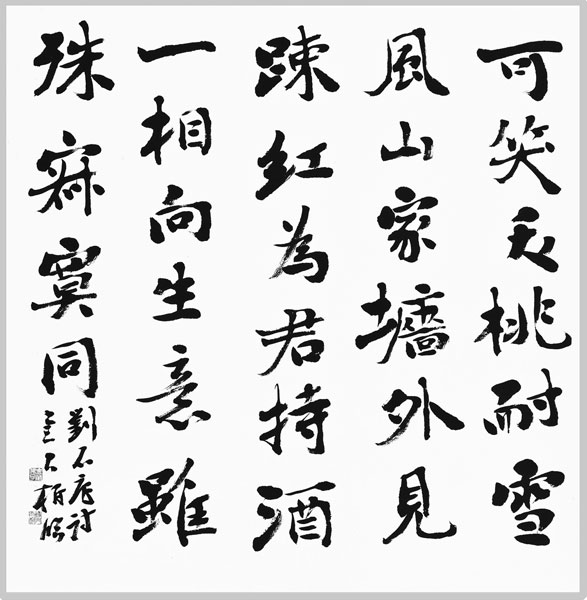 可笑夭桃耐雪
風山家墻外見
踈紅為君持酒
一相向生意雖
殊寂寞同
劉石庵詩